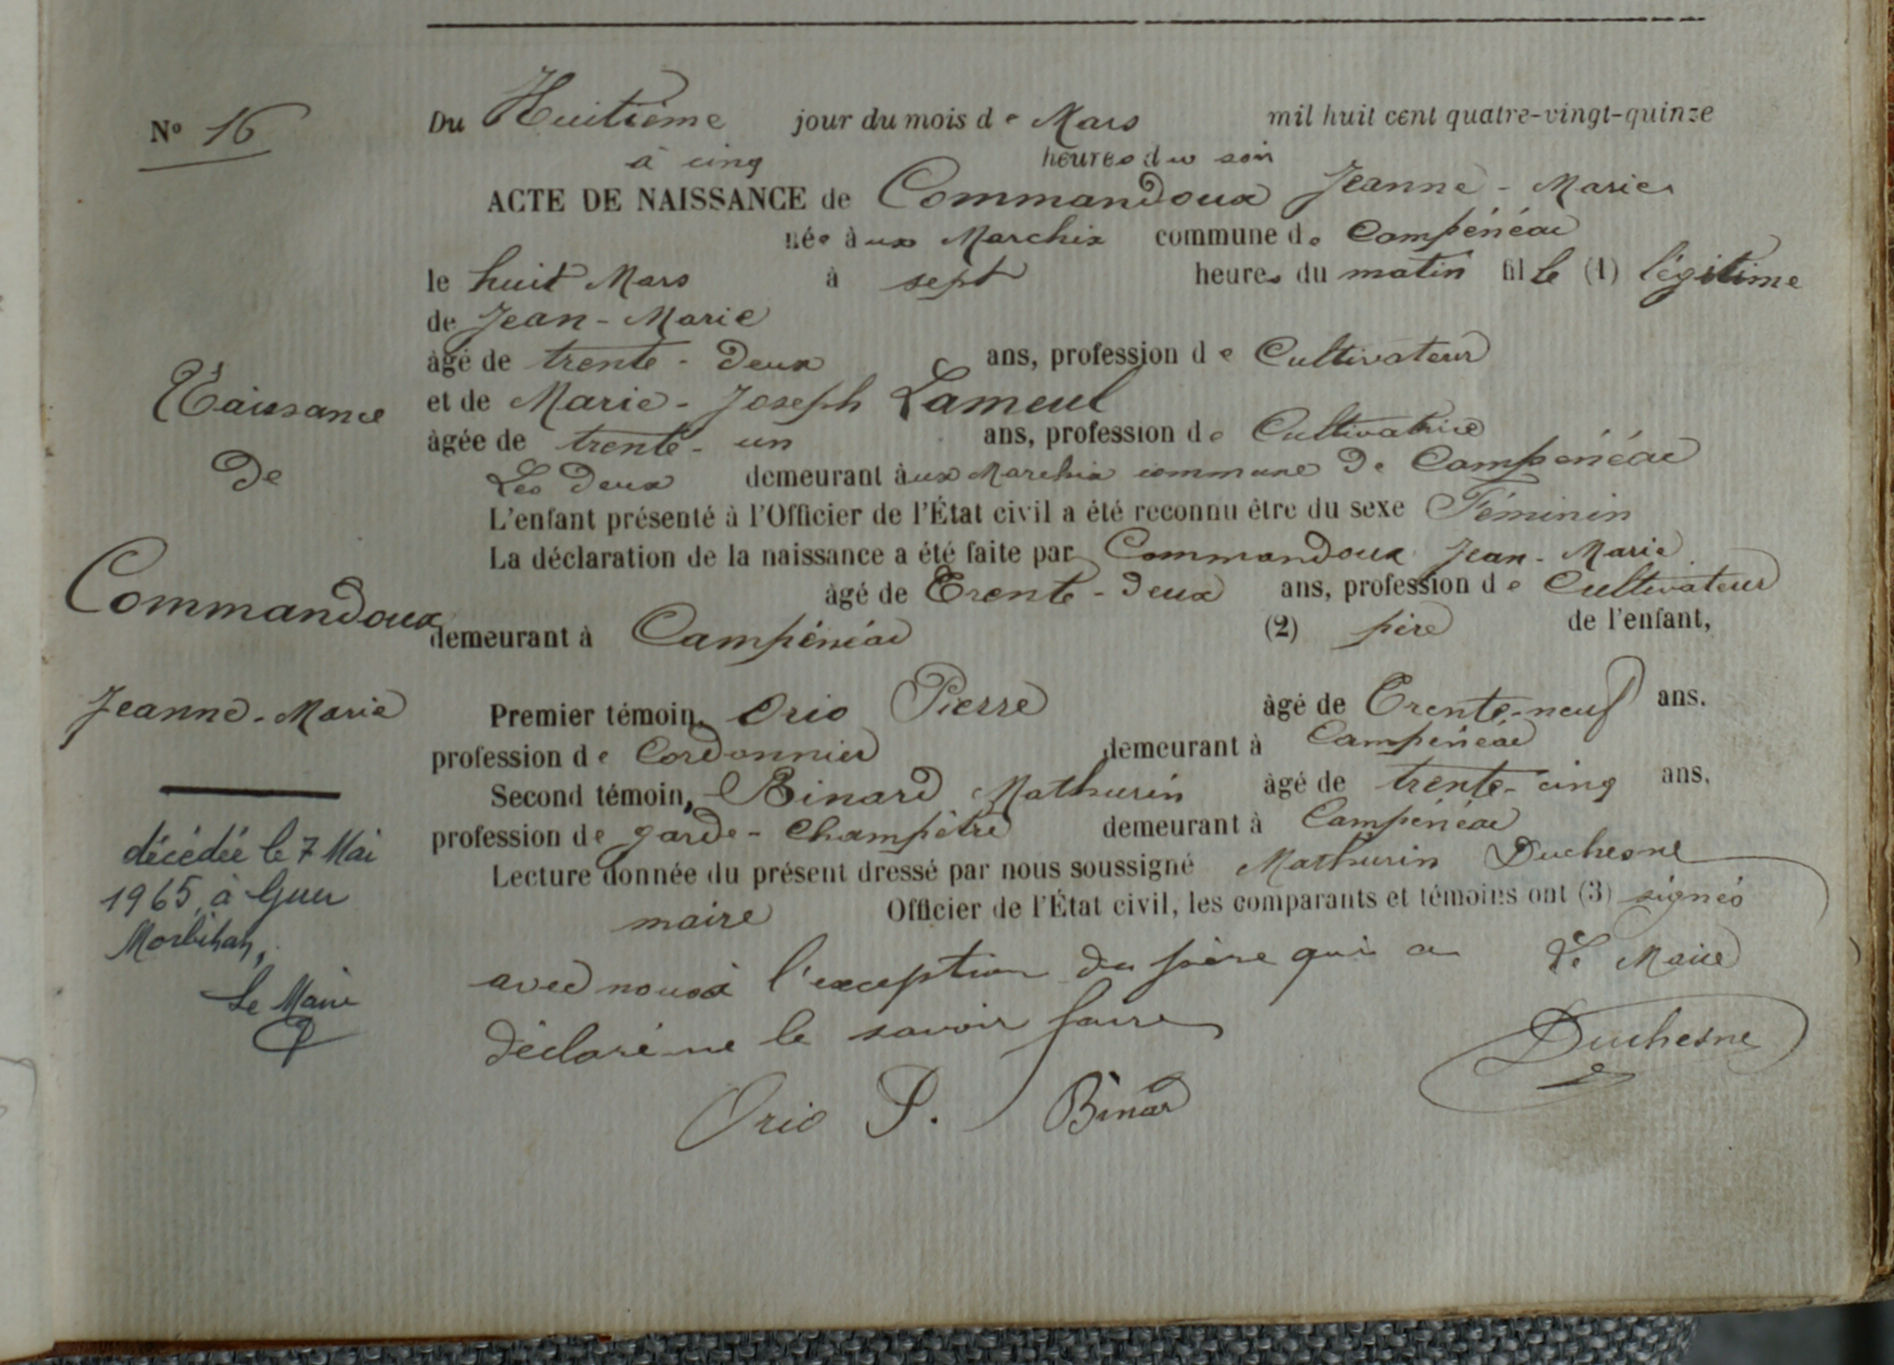 N° 16
Du Huitième jour du mois de Mars mil huit cent quatre-vingt-quinze
à cinq heures du soir
ACTE DE NAISSANCE de Commandoux Jeanne-Marie
née à ux Marchix commune de Campénéac
le huit Mars à sept heures du matin fille (1) légitime
de Jean-Marie
âgé de trente-deux ans, profession de Cultivateur
et de Marie-Joseph Lameul
âgée de trente-un ans, profession de Cultivatrice
Les deux demeurant à ux Marchix commune de Campénéac
L'enfant présenté à l'Officier de l'État civil a été reconnu être du sexe Féminin
La déclaration de la naissance a été faite par Commandoux Jean-Marie
âgé de Trente-deux ans, profession de Cultivateur
demeurant à Campénéac (2) père de l'enfant,
Premier témoin, Orio Pierre âgé de Trente-neuf ans.
profession de Cordonnier demeurant à Campénéac
Second témoin, Binard Mathurin âgé de trente-cinq ans,
profession de garde-Champêtre demeurant à Campénéac
Lecture donnée du présent dressé par nous soussigné Mathurin Duchesne
maire Officier de l'État civil, les comparants et témoins ont (3) signés
avec nous à l'exception du père qui a
déclaré ne le savoir faire
Le Maire
Duchesne
Orio P. Binar
Naissance
de
Commandoux
Jeanne-Marie
décédée le 7 Mai
1965, à Guer
Morbihan,
Le Maire